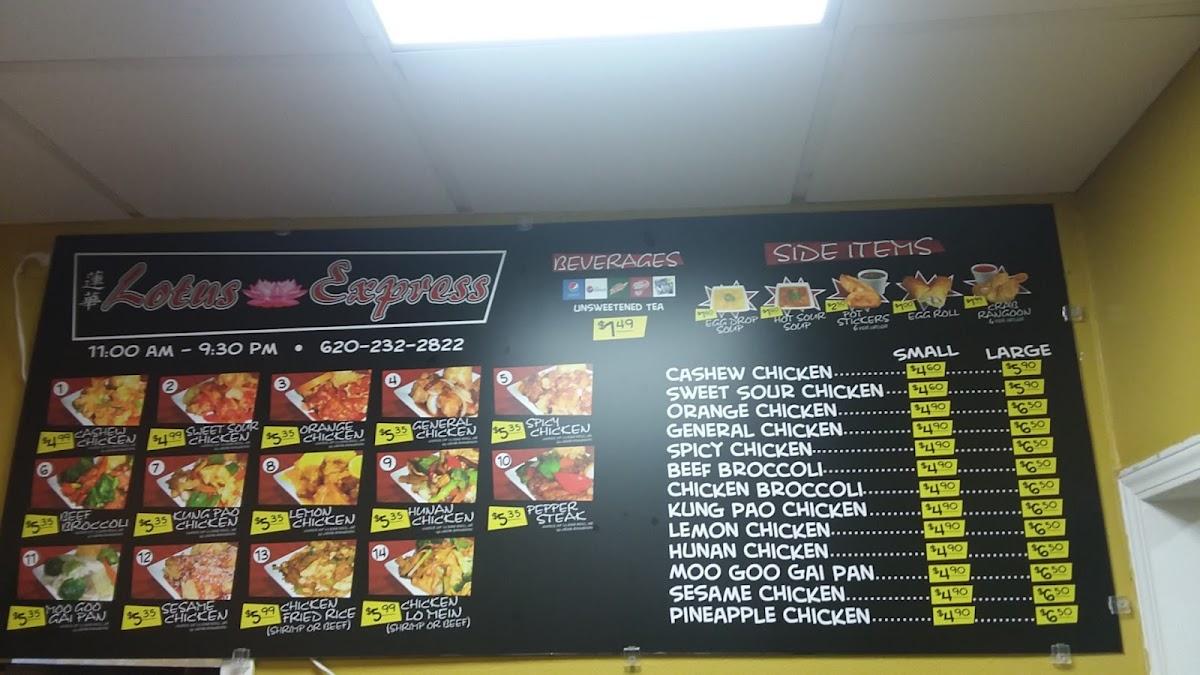 蓮華
Lotus Express
11:00 AM - 9:30 PM • 620-232-2822
1
$4.99 CASHEW
CHICKEN
2
$4.99 SWEET SOUR
CHICKEN
3
$5.35 ORANGE
CHICKEN
4
$5.35 GENERAL
CHICKEN
5
$5.35 SPICY
CHICKEN
6
$5.35 BEEF
BROCCOLI
7
$5.35 KUNG PAO
CHICKEN
8
$5.35 LEMON
CHICKEN
9
$5.35 HUNAN
CHICKEN
10
$5.35 PEPPER
STEAK
11
$5.35 MOO GOO
GAI PAN
12
$5.35 SESAME
CHICKEN
13
$5.99 CHICKEN
FRIED RICE
(SHRIMP OR BEEF)
14
$5.99 CHICKEN
LO MEIN
(SHRIMP OR BEEF)
BEVERAGES
UNSWEETENED TEA
$1.49
SIDE ITEMS
EGG DROP
SOUP
HOT SOUR
SOUP
POT
STICKERS
EGG ROLL
CRAB
RANGOON
SMALL LARGE
CASHEW CHICKEN $4.60 $5.90
SWEET SOUR CHICKEN $4.60 $5.90
ORANGE CHICKEN $4.90 $6.50
GENERAL CHICKEN $4.90 $6.50
SPICY CHICKEN $4.90 $6.50
BEEF BROCCOLI $4.90 $6.50
CHICKEN BROCCOLI $4.90 $6.50
KUNG PAO CHICKEN $4.90 $6.50
LEMON CHICKEN $4.90 $6.50
HUNAN CHICKEN $4.90 $6.50
MOO GOO GAI PAN $4.90 $6.50
SESAME CHICKEN $4.90 $6.50
PINEAPPLE CHICKEN $4.90 $6.50